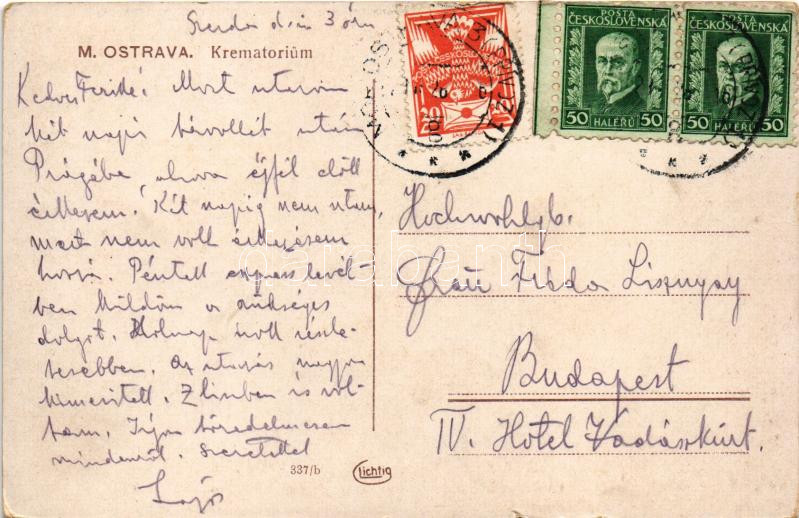 Szerda d.u. 3 óra
M. OSTRAVA. Krematorium
Most utazom
két napi távollét után
Prágába, ahova éjfél előtt
érkezem. Két napig nem írtam,
mert nem volt érkezésem
hozzá. Péntek express levél-
ben küldöm a szükséges
dolgot. Holnap írok részle-
tesebben. Az utazás nagyon
kimerített. Zlinben is vol-
tam. Írjon türedelmesen
mindenről. Szeretettel
Lajos
337/b
lichtig
POSTA
ČESKOSLOVENSKÁ
50 50
HALÉŘŮ
POSTA
ČESKOSLOVENSKÁ
50 50
HALÉŘŮ
20
Hochwohlgb.
Frau Frida Lisznyay
Budapest
IV. Hotel Vadászkürt.